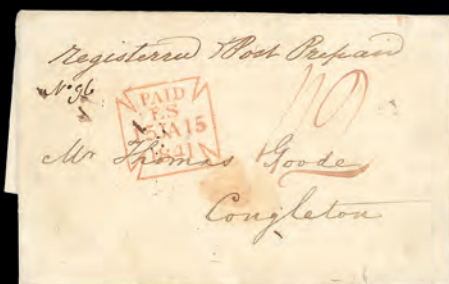 Registered & Post Prepaid
No 96
PAID
ES
15 JA 15
1841
Mr Thomas Goode
Congleton